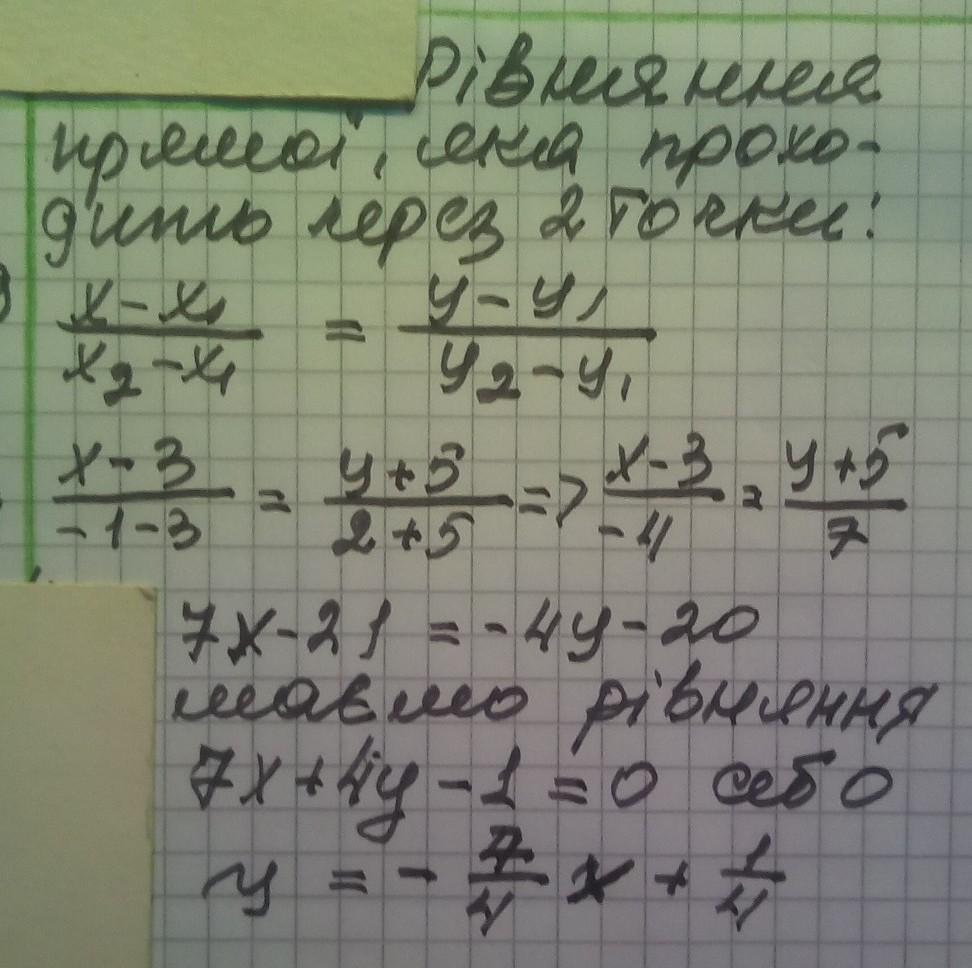 Рівняння
прямої, яка прохо-
дить через 2 точки:
x - x₁ / x₂ - x₁ = y - y₁ / y₂ - y₁
x - 3 / -1 - 3 = y + 5 / 2 + 5 => x - 3 / -4 = y + 5 / 7
7x - 21 = -4y - 20
маємо рівняння
7x + 4y - 1 = 0 або
y = - 7/4 x + 1/4